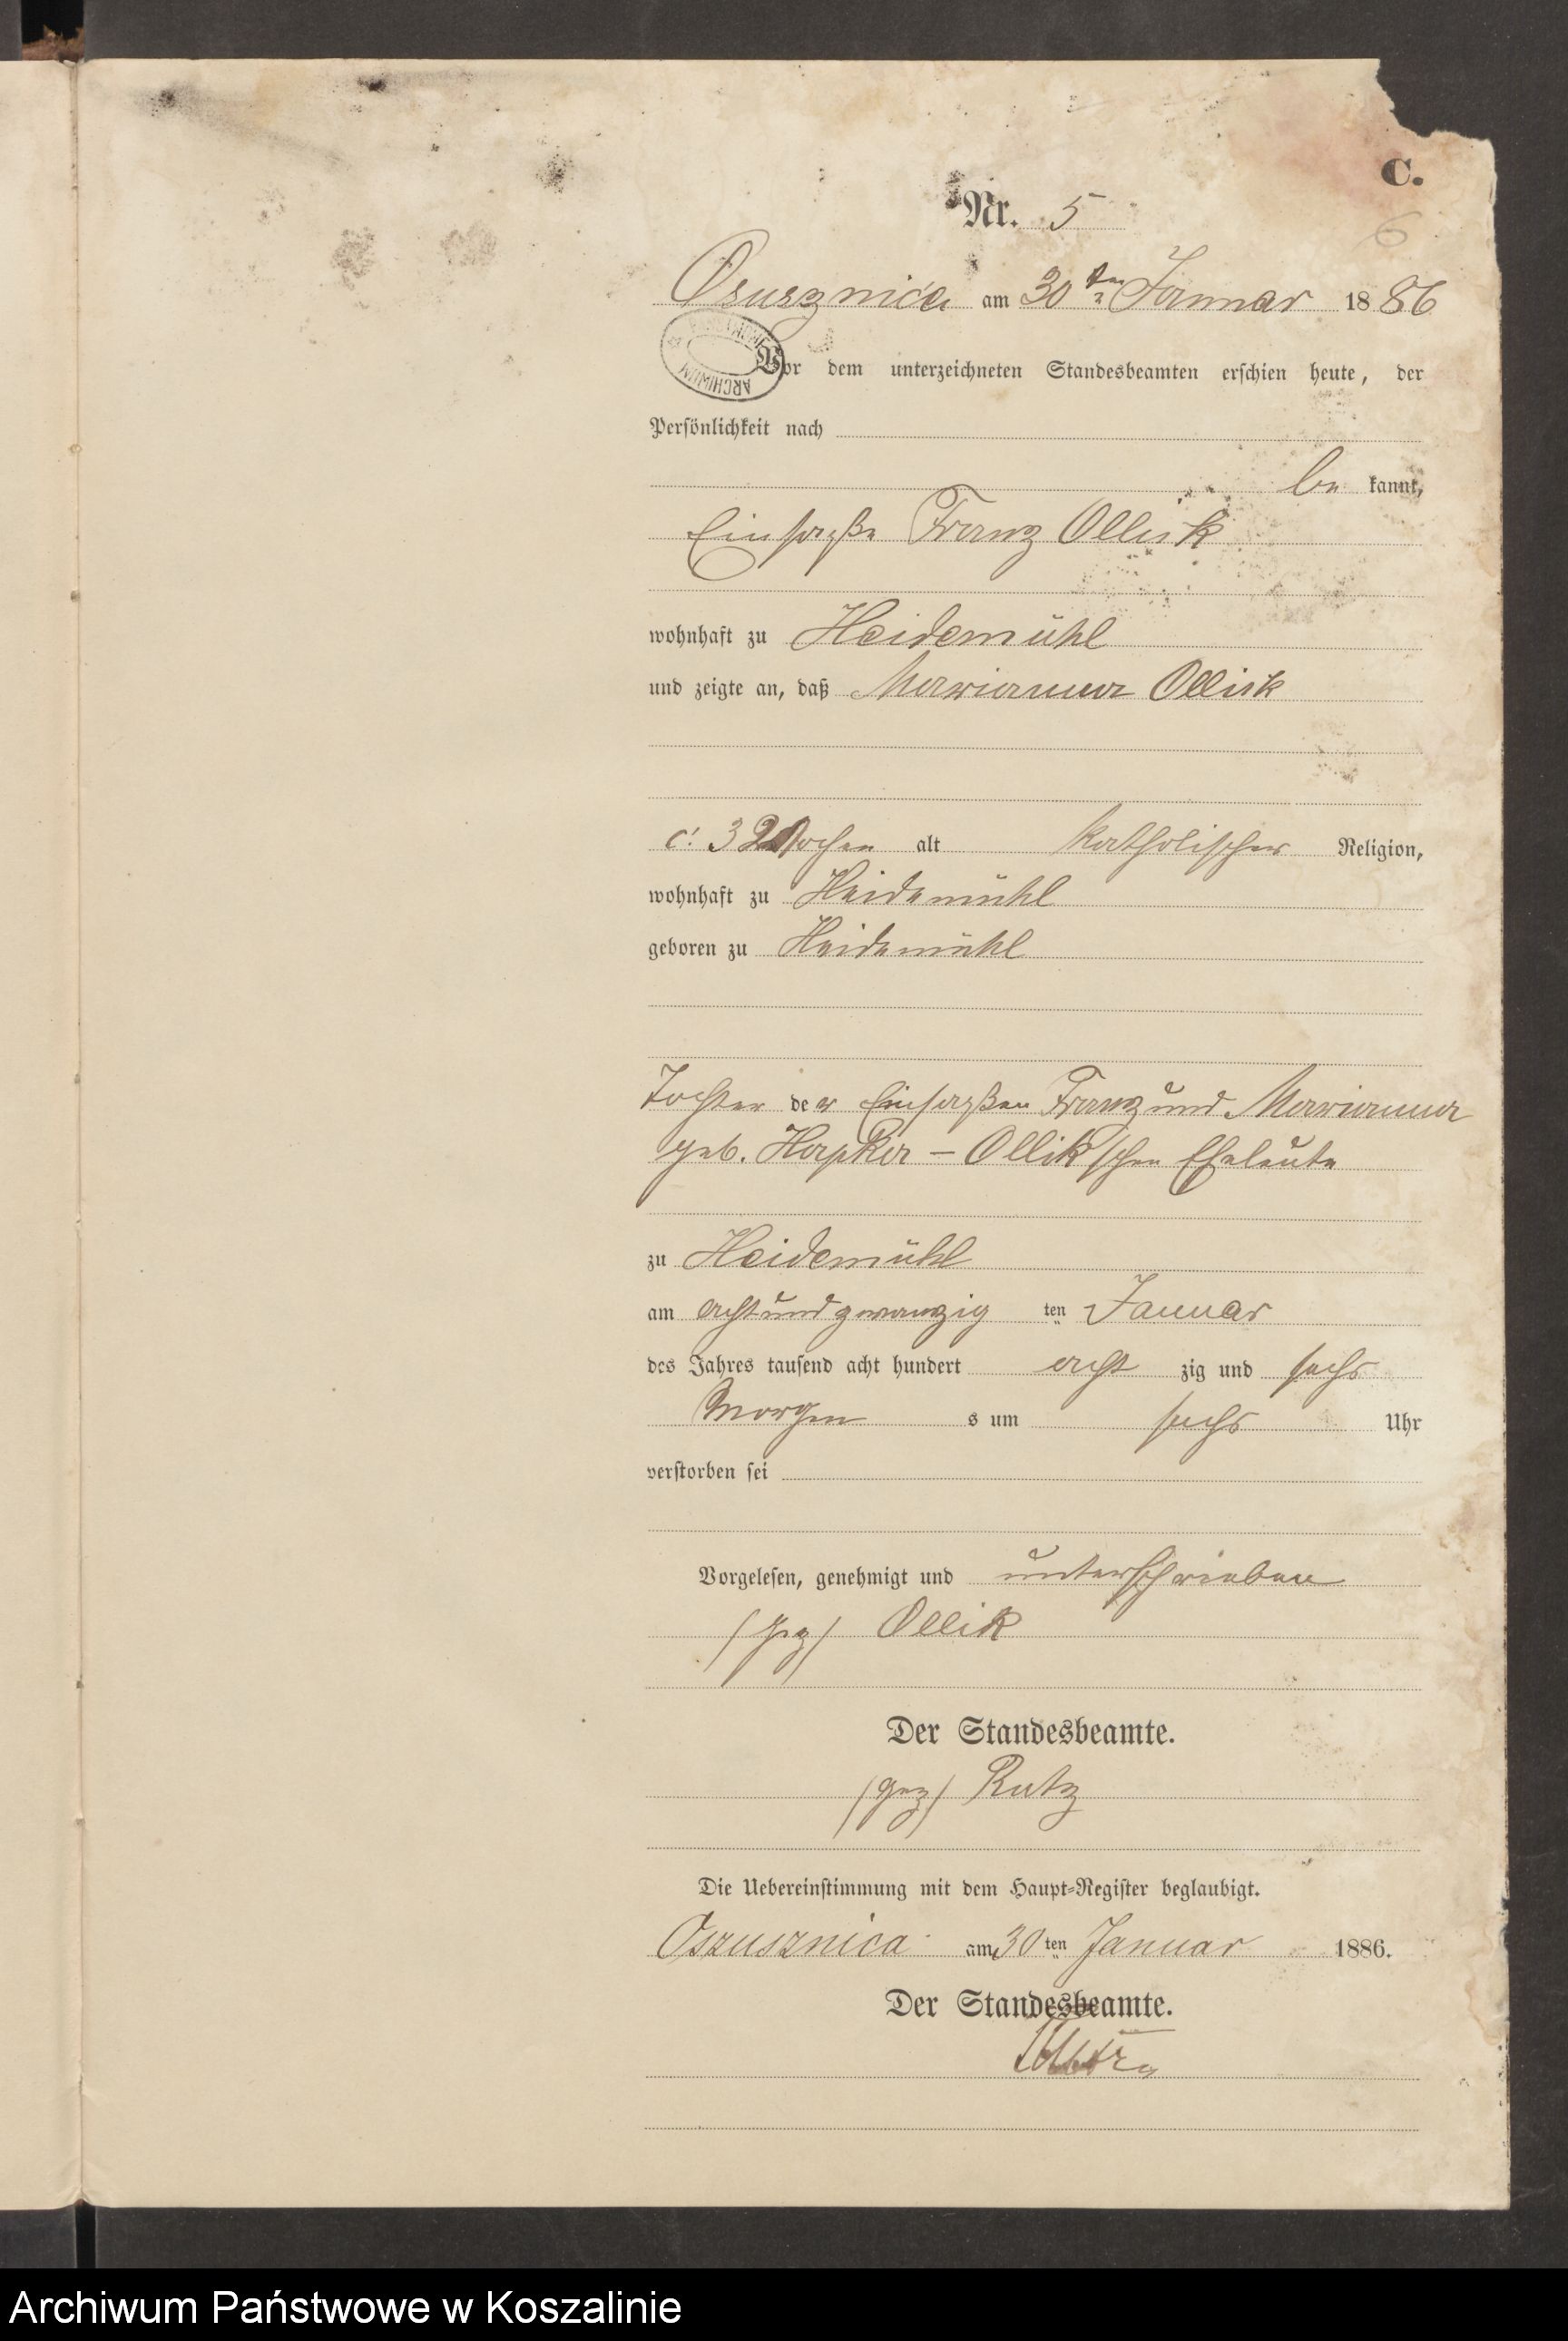 C.
Nr. 5
6
am 30ten Januar 1886
ARCHIWUM
Vor dem unterzeichneten Standesbeamten erschien heute, der
Persönlichkeit nach
be kannt,
Einsaße Franz Ollik
wohnhaft zu Heidemühl
und zeigte an, daß Marianna Ollik
c. 3 Wochen alt katholischer Religion,
wohnhaft zu Heidemühl
geboren zu Heidemühl
Tochter der Einsaßen Franz und Marianna
geb. Hapka – Ollik'schen Eheleute
zu Heidemühl
am achtundzwanzig ten Januar
des Jahres tausend acht hundert acht zig und sechs
Morgen s um sechs Uhr
verstorben sei
Vorgelesen, genehmigt und unterschrieben
/gez/ Ollik
Der Standesbeamte.
/gez/ Rutz
Die Uebereinstimmung mit dem Haupt-Register beglaubigt.
Oszusznica am 30ten Januar 1886.
Der Standesbeamte.
Archiwum Państwowe w Koszalinie